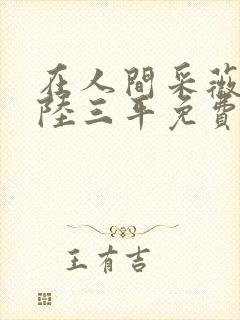 在人間采薇
陸三年免費
王有吉